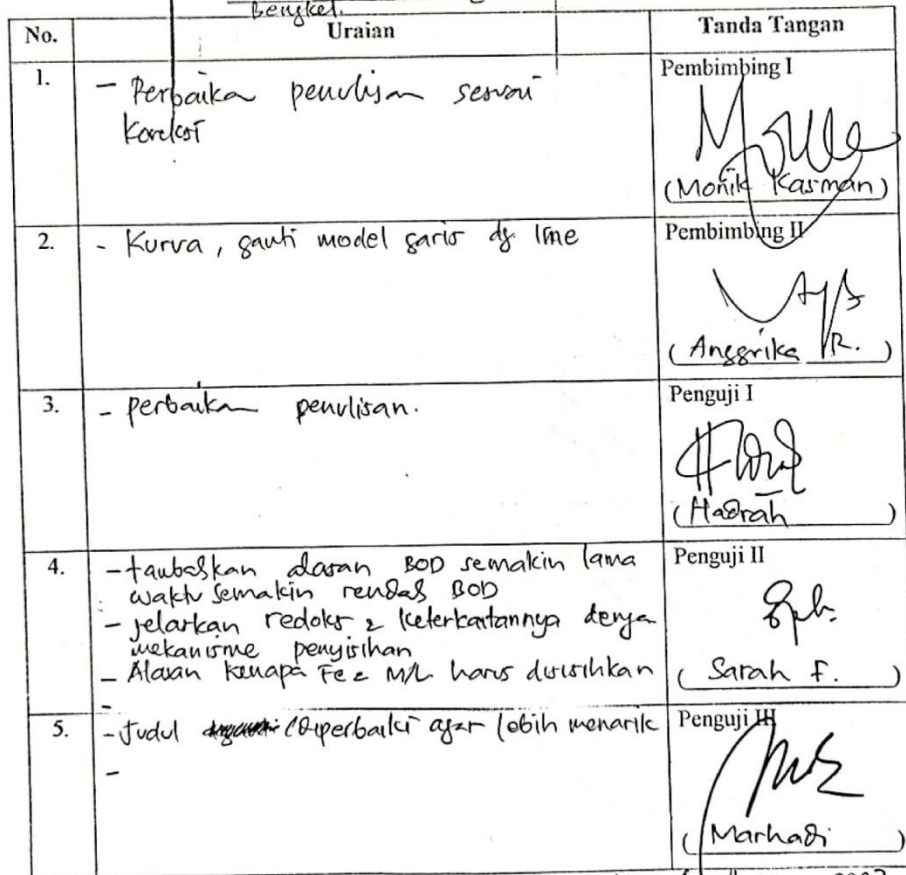 Bengkel.
No. Uraian Tanda Tangan
1. - Perbaika penulisan sesuai Pembimbing I
koreksi
(Monik Kasman)
2. - Kurva, ganti model garis dg line Pembimbing II
(Anggrika R.)
3. - perbaikan penulisan. Penguji I
(Hadrah)
4. - tambahkan alasan BOD semakin lama Penguji II
waktu semakin rendah BOD
- jelaskan redoks & keterkaitannya dengan
mekanisme penyisihan
- Alasan kenapa Fe & M/L harus disisihkan (Sarah F.)
-
5. - Judul diperbaiki agar lebih menarik Penguji III
-
(Marhadi)